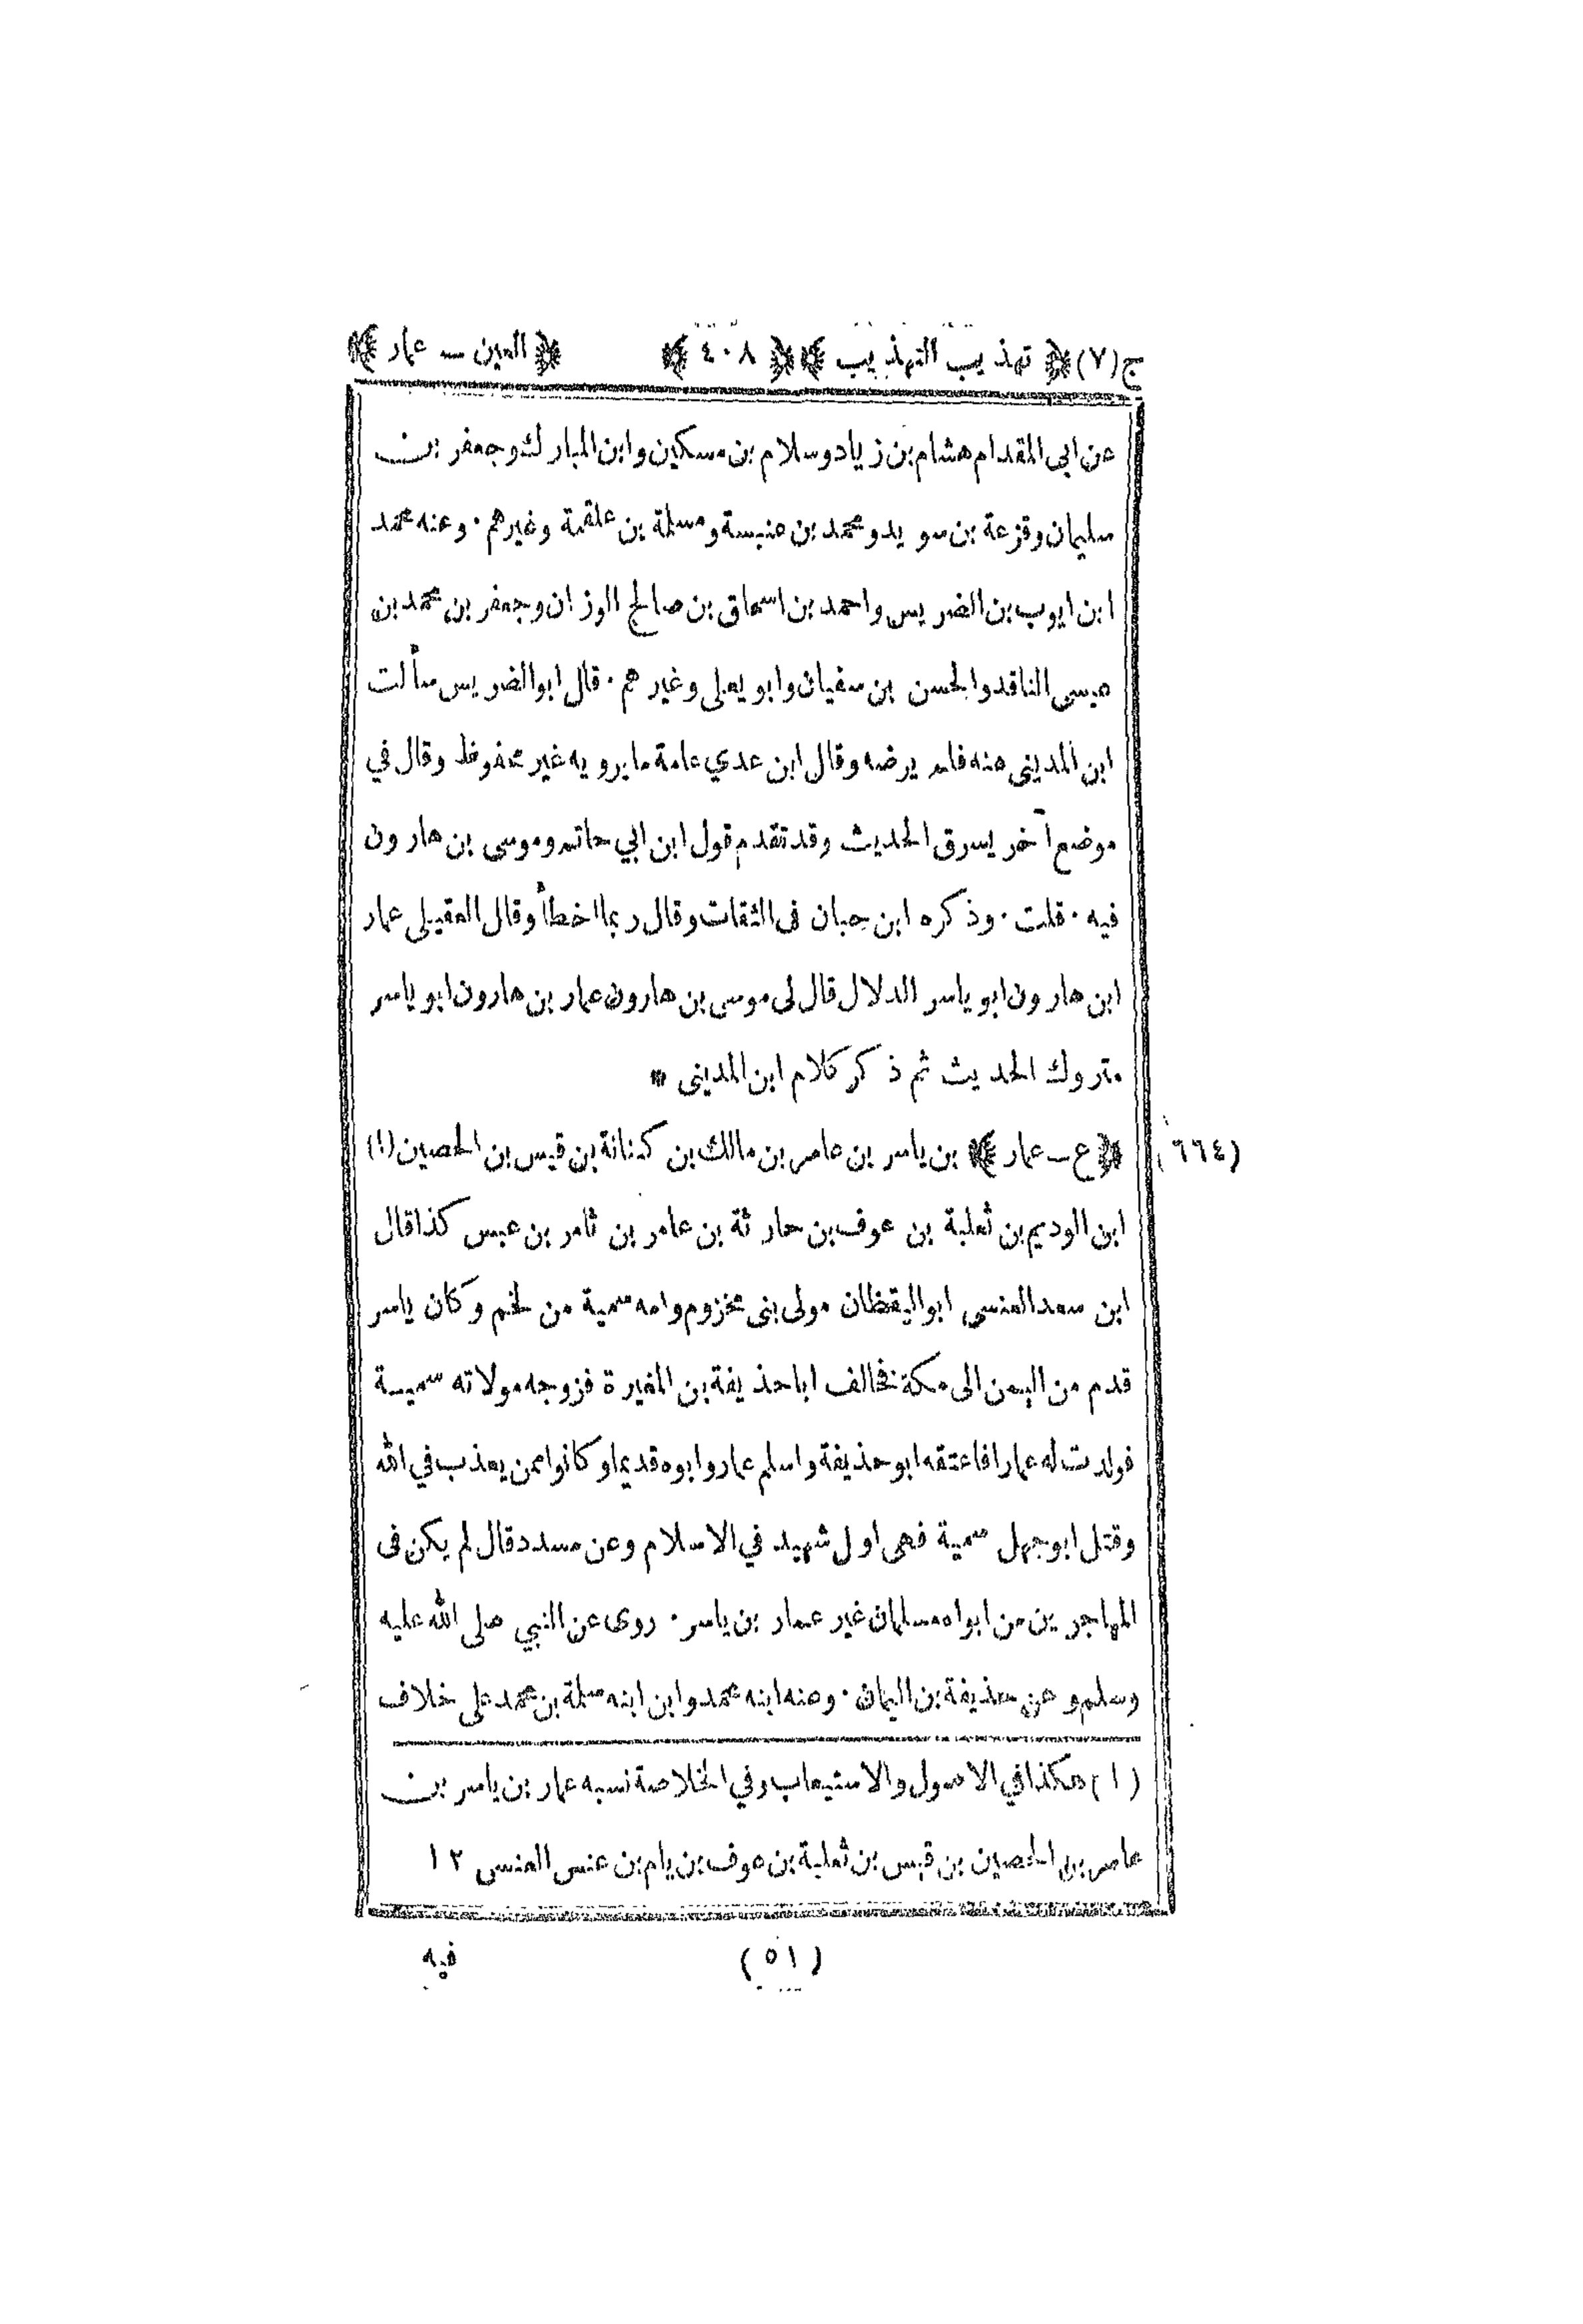 ج(٧) ﴿ تهذيب التهذيب ﴾ ﴿ ٤٠٨ ﴾ ﴿ العين ــ عمار ﴾
عن ابى المقدام هشام بن زياد وسلام بن مسكين وابن المبارك وجعفر بن
سليمان وقزعة بن سويد ومحمد بن عنبسة ومسلمة بن علقمة وغيرهم . وعنه محمد
ابن ايوب بن الضريس واحمد بن اسحاق بن صالح الوزان وجعفر بن محمد بن
عيسى الناقد والحسن بن سفيان وابو يعلى وغيرهم . قال ابو الضريس سألت
ابن المدينى عنه فلم يرضه وقال ابن عدي عامة ما يرويه غير محفوظ وقال في
موضع آخر يسرق الحديث وقد تقدم قول ابن ابي حاتم وموسى بن هارون
فيه . قلت . وذكره ابن حبان فى الثقات وقال ربما اخطأ وقال العقيلى عمار
ابن هارون ابو ياسر الدلال قال لى موسى بن هارون عمار بن هارون ابو ياسر
متروك الحديث ثم ذكر كلام ابن المدينى *
(٦٦٤) ﴿ ع ــ عمار ﴾ بن ياسر بن عامر بن مالك بن كنانة بن قيس بن الحصين (١)
ابن الوديم بن ثعلبة بن عوف بن حارثة بن عامر بن ثامر بن عبس كذا قال
ابن سعد العنسى ابو اليقظان مولى بنى مخزوم وامه سمية من لخم وكان ياسر
قدم من اليمن الى مكة فحالف ابا حذيفة بن المغيرة فزوجه مولاته سمية
فولدت له عمارا فاعتقه ابو حذيفة واسلم عمار وابوه قديما وكانوا ممن يعذب في الله
وقتل ابو جهل سمية فهى اول شهيد في الاسلام وعن مسدد قال لم يكن فى
المهاجرين من ابواه مسلمان غير عمار بن ياسر . روى عن النبي صلى الله عليه
وسلم وعن حذيفة بن اليمان . وعنه ابنه محمد وابن ابنه سلمة بن محمد على خلاف
(١) هكذا في الاصول والاستيعاب وفي الخلاصة نسبه عمار بن ياسر بن
عامر بن الحصين بن قيس بن ثعلبة بن عوف بن يام بن عنس العنسى ١٢
(٥١) فيه